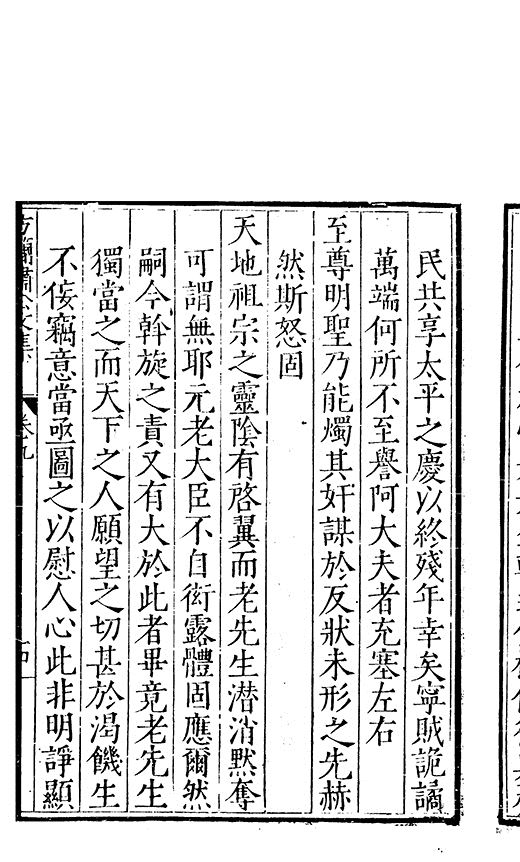 民共享太平之慶以終殘年幸矣寧賊詭譎
萬端何所不至譽阿大夫者充塞左右
至尊明聖乃能燭其奸謀於反狀未形之先赫
然斯怒固
天地祖宗之靈陰有啓翼而老先生潜消默奪
可謂無耶元老大臣不自衒露體固應爾然
嗣今斡旋之責又有大於此者畢竟老先生
獨當之而天下之人願望之切甚於渴饑生
不佞竊意當亟圖之以慰人心此非明諍顯
方簡肅公文集
卷九